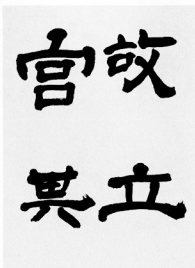 故立
宫其